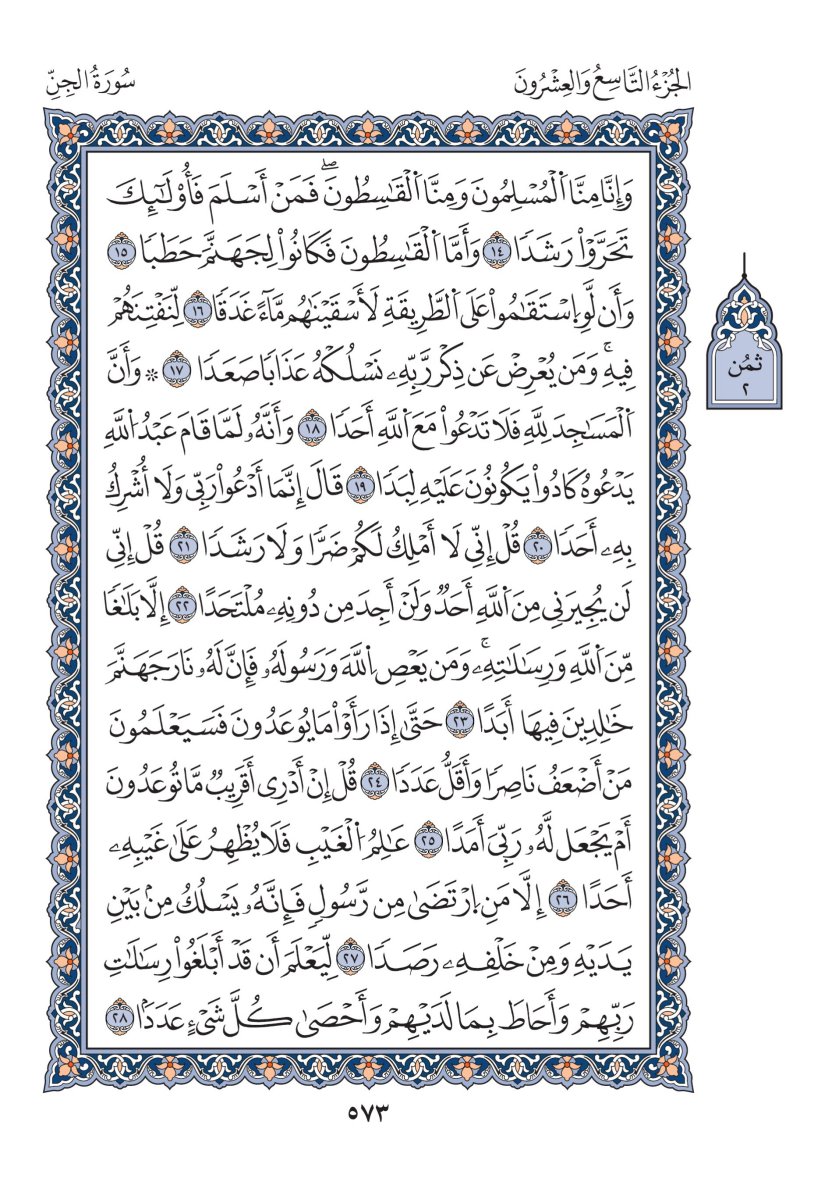 الجُزْءُ التَّاسِعُ وَالعِشْرُونَ
سُورَةُ الجِنِّ
وَإِنَّا مِنَّا اَ۬لْمُسْلِمُونَ وَمِنَّا اَ۬لْقَٰسِطُونَۖ فَمَنْ أَسْلَمَ فَأُوْلَٰٓئِكَ
تَحَرَّوْاْ رَشَدٗا ١٤ وَأَمَّا اَ۬لْقَٰسِطُونَ فَكَانُواْ لِجَهَنَّمَ حَطَبٗا ١٥
وَأَن لَّوِ اِ۪سْتَقَٰمُواْ عَلَى اَ۬لطَّرِيقَةِ لَأَسْقَيْنَٰهُم مَّآءً غَدَقٗا ١٦ لِّنَفْتِنَهُمْ
فِيهِۚ وَمَن يُعْرِضْ عَن ذِكْرِ رَبِّهِۦ نَسْلُكْهُ عَذَابٗا صَعَدٗا ١٧ ۞ وَأَنَّ
اَ۬لْمَسَٰجِدَ لِلَّهِ فَلَا تَدْعُواْ مَعَ اَ۬للَّهِ أَحَدٗا ١٨ وَأَنَّهُۥ لَمَّا قَامَ عَبْدُ اُ۬للَّهِ
يَدْعُوهُ كَادُواْ يَكُونُونَ عَلَيْهِ لِبَدٗا ١٩ قَالَ إِنَّمَا أَدْعُواْ رَبِّي وَلَا أُشْرِكُ
بِهِۦ أَحَدٗا ٢٠ قُلْ إِنِّي لَا أَمْلِكُ لَكُمْ ضَرّٗا وَلَا رَشَدٗا ٢١ قُلْ إِنِّي
لَن يُجِيرَنِي مِنَ اَ۬للَّهِ أَحَدٞ وَلَنْ أَجِدَ مِن دُونِهِۦ مُلْتَحَدًا ٢٢ إِلَّا بَلَٰغٗا
مِّنَ اَ۬للَّهِ وَرِسَٰلَٰتِهِۦۚ وَمَن يَعْصِ اِ۬للَّهَ وَرَسُولَهُۥ فَإِنَّ لَهُۥ نَارَ جَهَنَّمَ
خَٰلِدِينَ فِيهَا أَبَدًا ٢٣ حَتَّىٰ إِذَا رَأَوْاْ مَا يُوعَدُونَ فَسَيَعْلَمُونَ
مَنْ أَضْعَفُ نَاصِرٗا وَأَقَلُّ عَدَدٗا ٢٤ قُلْ إِنْ أَدْرِي أَقَرِيبٞ مَّا تُوعَدُونَ
أَمْ يَجْعَل لَّهُۥ رَبِّيَ أَمَدًا ٢٥ عَٰلِمُ اُ۬لْغَيْبِ فَلَا يُظْهِرُ عَلَىٰ غَيْبِهِۦ
أَحَدًا ٢٦ إِلَّا مَنِ اِ۪رْتَضَىٰ مِن رَّسُولٖ فَإِنَّهُۥ يَسْلُكُ مِنۢ بَيْنِ
يَدَيْهِ وَمِنْ خَلْفِهِۦ رَصَدٗا ٢٧ لِّيَعْلَمَ أَن قَدْ أَبْلَغُواْ رِسَٰلَٰتِ
رَبِّهِمْ وَأَحَاطَ بِمَا لَدَيْهِمْ وَأَحْصَىٰ كُلَّ شَيْءٍ عَدَدَۢا ٢٨
ثمُن
٢
٥٧٣